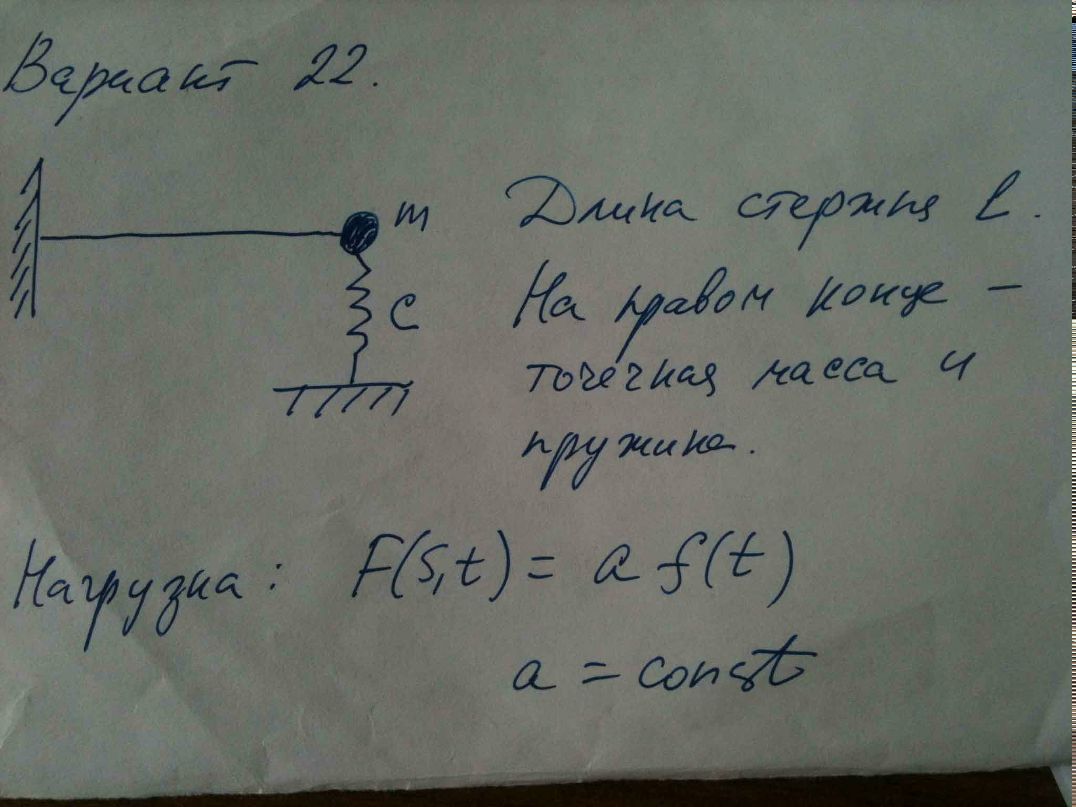 Вариант 22.
m
Длина стержня l.
C
На правом конце –
точечная масса и
пружина.
Нагрузка: F(s,t) = a f(t)
a = const